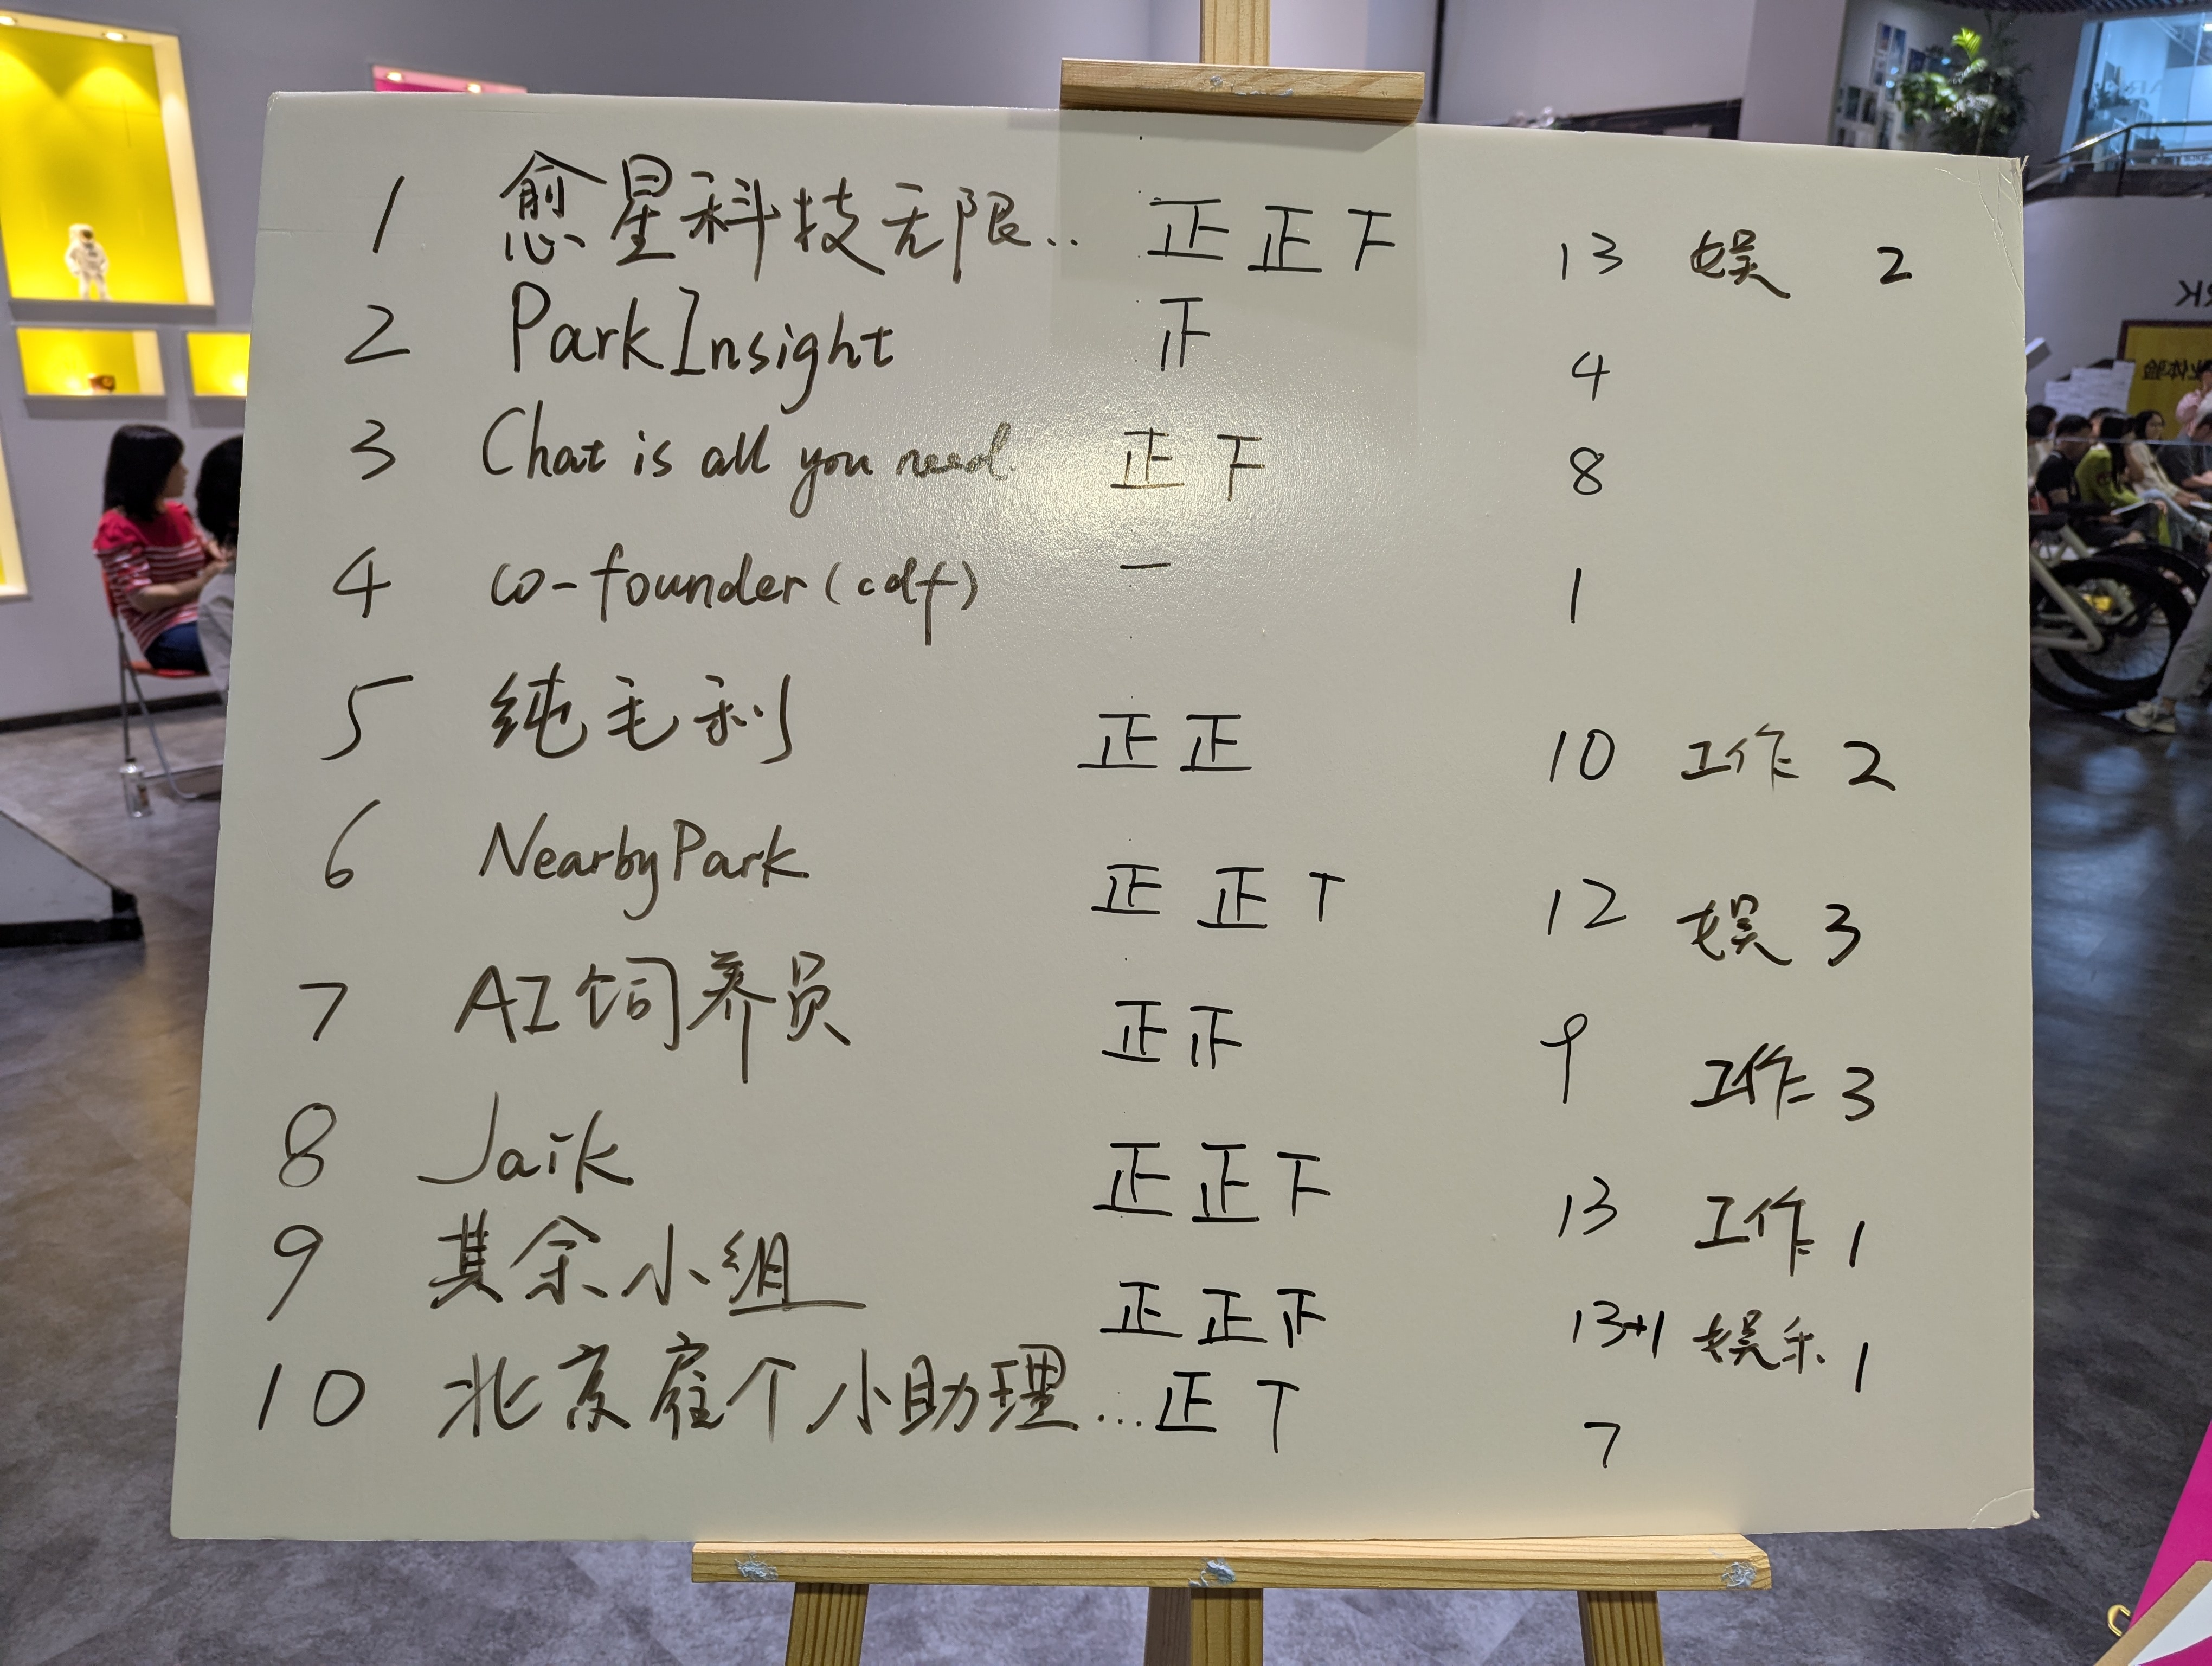 1 愈星科技无限.. 正正下 13 娱 2
2 ParkInsight 正 4
3 Chat is all you need 正下 8
4 co-founder(cdf) 一 1
5 纯毛利 正正 10 工作 2
6 NearbyPark 正正丅 12 娱 3
7 AI饲养员 正正 9 工作 3
8 Jaik 正正下 13 工作 1
9 其余小组 正正正 13+1 娱乐 1
10 北京雇个小助理... 正丅 7